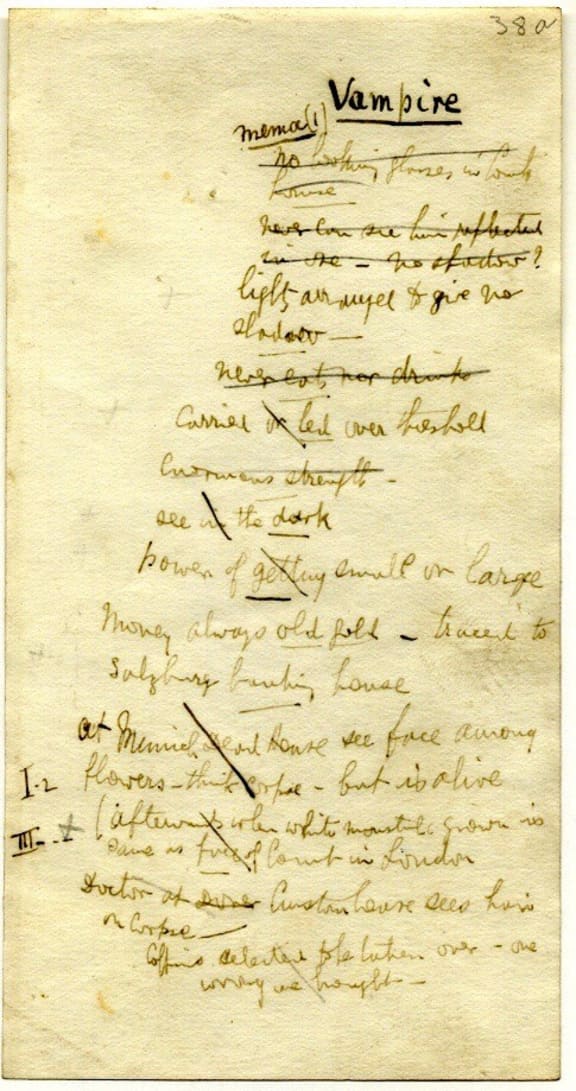 38a
Vampire
memo (1)
no looking glasses in Count's
house
never can see him reflected
in one - no shadow?
lights arranged to give no
shadow -
never eats nor drinks
Carried or led over threshold
Enormous strength -
see in the dark
power of getting small or large
Money always old gold - traced to
Salzburg banking house
I.2
at Munich Dead House see face among
flowers - think corpse - but is alive
III
(afterwards when white moustache grown is
same as face of Count in London
Doctor at Dover Custom house sees him
or corpse -
Coffins selected to be taken over - one
wrong one brought -